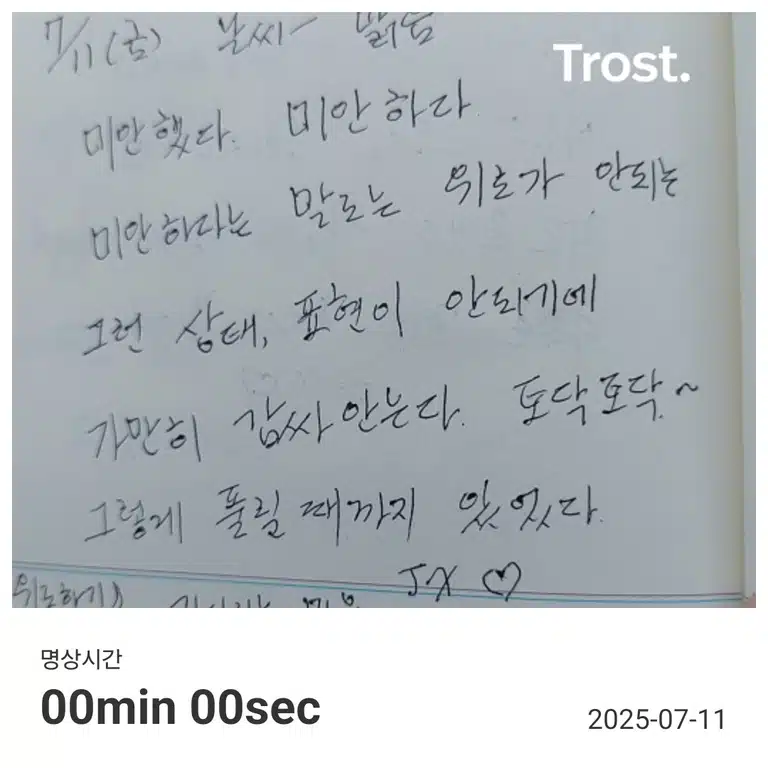 7/11(금) 날씨- 맑음
Trost.
미안했다. 미안하다
미안하다는 말로는 위로가 안되는
그런 상태, 표현이 안되기에
가만히 감싸안는다. 토닥토닥~
그렇게 풀릴때까지 있었다.
JX ♡
위로하기
명상시간
00min 00sec
2025-07-11